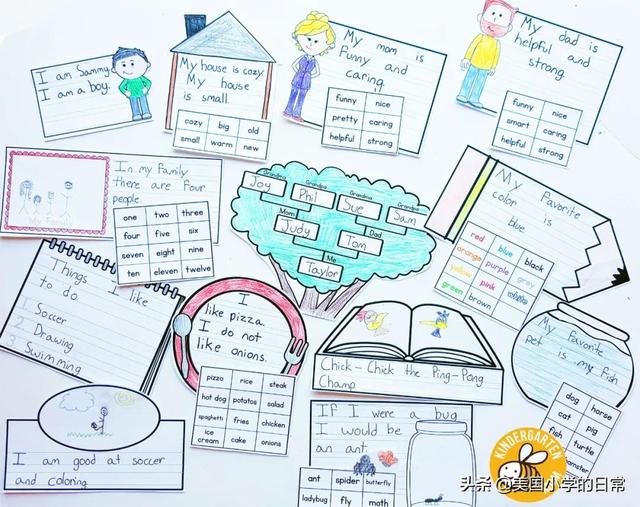 I am Sammy.
I am a boy.
My house is cozy.
My house
is small.
cozy big old
small warm new
My mom is
funny and
caring.
funny nice
pretty caring
helpful strong
My dad is
helpful and
strong.
funny nice
smart caring
helpful strong
In my family
there are four
people.
one two three
four five six
seven eight nine
ten eleven twelve
Grandma Grandpa Grandma Grandpa
Joy Phil Sue Sam
Mom Dad
Judy Tom
Me
Taylor
My favorite
color is
blue.
red blue black
orange purple grey
yellow pink white
green brown
Things I like
to do
1 Soccer
2 Drawing
3 Swimming
I
like pizza.
I do not
like onions.
pizza rice steak
hot dog potatoes salad
spaghetti fries chicken
ice cream cake onions
Chick-Chick the Ping-Pong
Champ
My favorite
pet is my fish
dog horse
cat pig
fish turtle
hamster
I am good at soccer
and coloring.
If I were a bug
I would be
an ant.
ant spider butterfly
ladybug fly moth
KINDERGARTEN
头条 @美国小学的日常